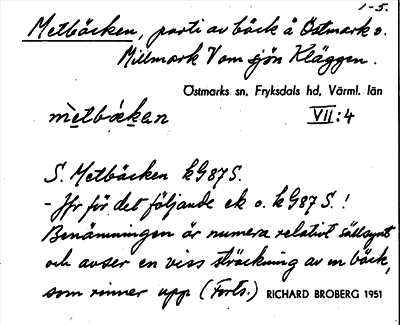 1-5.
Metbäcken, parti av bäck å Östmark o.
Millmark V om sjön Kläggen.
Östmarks sn, Fryksdals hd, Värml. län
mè̱tbǽka̱n VII:4
S. Metbäcken kG87S.
- Jfr för det följande ek o. kG87S.!
Benämningen är numera relativt sällsynt
och avser en viss sträckning av en bäck,
som rinner upp (Forts.) RICHARD BROBERG 1951